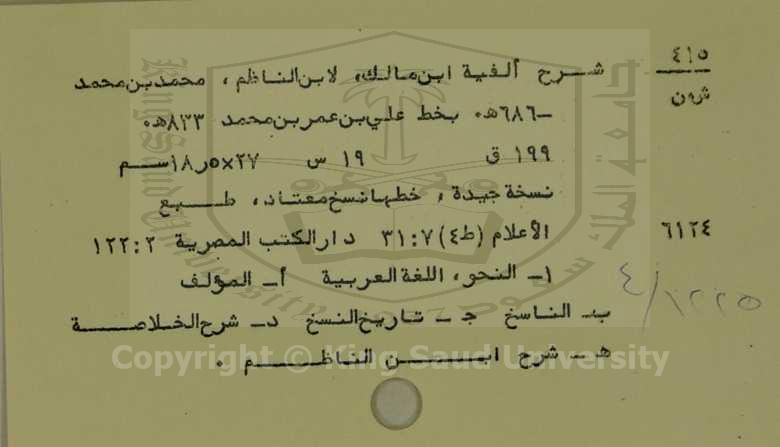 ٤١٥
شرح ألفية ابن مالك، لابن الناظم، محمد بن محمد
ش٠ن
-٦٨٦ه٠ بخط علي بن عمر بن محمد ٨٣٣ه٠
١٩٩ ق ١٩ س ٢٧×١٨٫٥ سم
نسخة جيدة، خطها نسخ معتاد، طبع
٦١٢٤
الأعلام (ط٤) ٣١:٧ دار الكتب المصرية ١٢٢:٢
١- النحو، اللغة العربية أ- المؤلف
٤/١٢٢٥
ب- الناسخ ج- تاريخ النسخ د- شرح الخلاصة
هـ- شرح ابن الناظم ٠
Copyright © King Saud University
جامعة الملك سعود
King Saud University